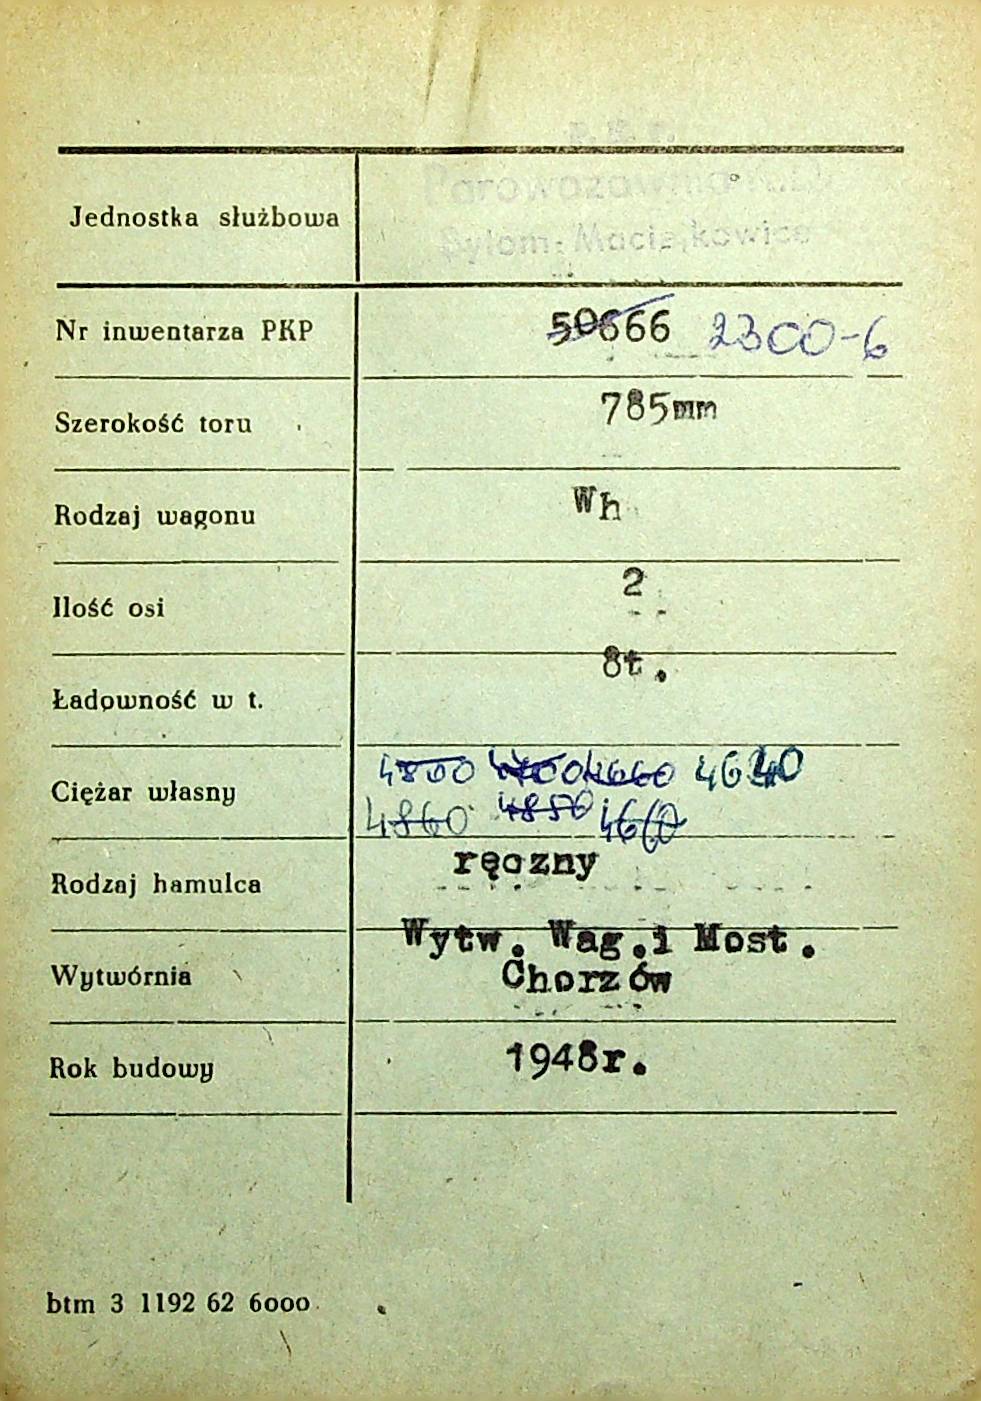 P. K. P.
Parowozownia K.D.
Bytom-Maciejkowice
Jednostka służbowa
Nr inwentarza PKP 50666 2300-6
Szerokość toru 785mm
Rodzaj wagonu Wh
Ilość osi 2
Ładowność w t. 8t.
Ciężar własny 4800 4660 4640
4860 4880 4660
Rodzaj hamulca ręczny
Wytwórnia Wytw. Wag.i Most.
Chorzów
Rok budowy 1948r.
btm 3 1192 62 6000